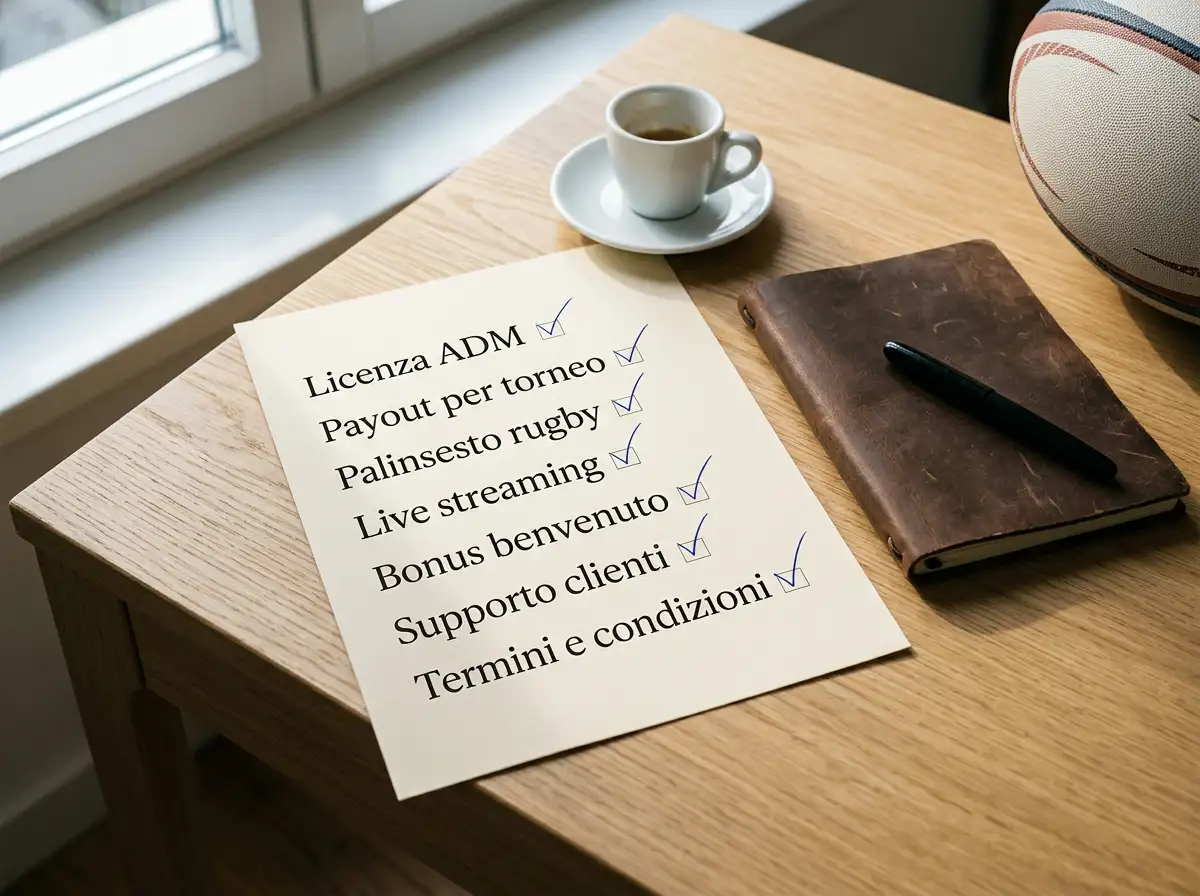 Licenza ADM
Payout per torneo
Palinsesto rugby
Live streaming
Bonus benvenuto
Supporto clienti
Termini e condizioni